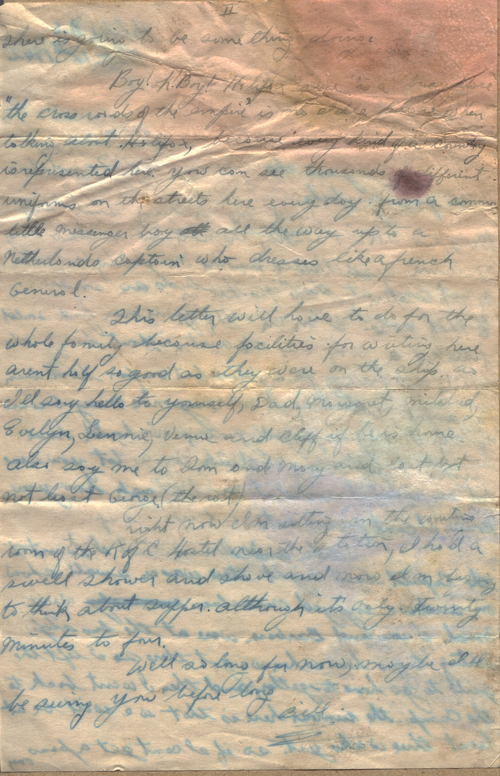 II
there is going to be something doing.
Boy! o Boy! Halifax is a
"the cross roads of the empire" is
talking about Halifax, because every kind of a country
is represented here. you can see thousands different
uniforms on the streets here every day. from a common
little messenger boy all the way up to a
Netherlands captain who dresses like a french
General.
This letter will have to do for the
whole family because facilities for writing here
arent half so good as they were on the ship so
I'll say hello to yourself, Dad, Margaret, Mildred,
Evelyn, Lennie, Verne and Cliff if he is home.
also say me to Tom and Mary and last but
not least George (the rat)
right now I'm sitting in the writing
room of the K of C Hostel near the station, I had a
swell shower and shave and now I'm
to think about supper. although it's only twenty
minutes to four.
Well so long for now, maybe I'll
be seeing you before long